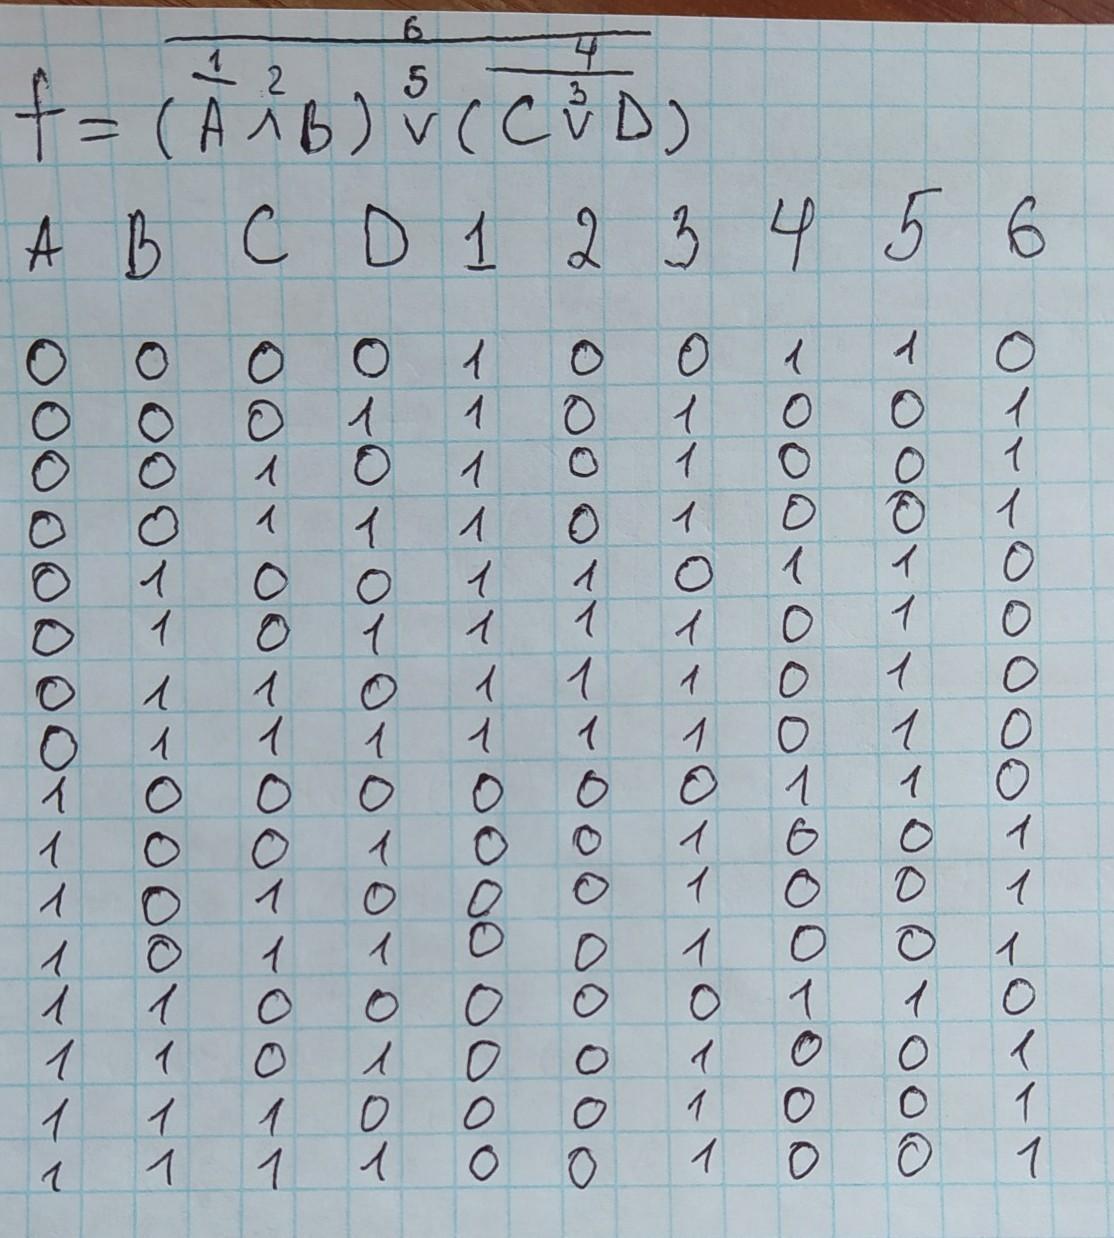 6
1 2 5 4
3
f = (A ∧ B) ∨ (C ∨ D)
A B C D 1 2 3 4 5 6
0 0 0 0 1 0 0 1 1 0
0 0 0 1 1 0 1 0 0 1
0 0 1 0 1 0 1 0 0 1
0 0 1 1 1 0 1 0 0 1
0 1 0 0 1 1 0 1 1 0
0 1 0 1 1 1 1 0 1 0
0 1 1 0 1 1 1 0 1 0
0 1 1 1 1 1 1 0 1 0
1 0 0 0 0 0 0 1 1 0
1 0 0 1 0 0 1 0 0 1
1 0 1 0 0 0 1 0 0 1
1 0 1 1 0 0 1 0 0 1
1 1 0 0 0 0 0 1 1 0
1 1 0 1 0 0 1 0 0 1
1 1 1 0 0 0 1 0 0 1
1 1 1 1 0 0 1 0 0 1